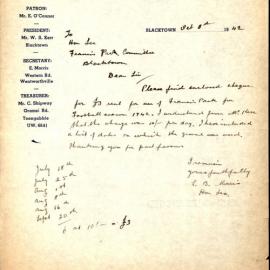 PATRON:
Mr. E. O'Connor
PRESIDENT:
Mr. W. S. Kerr
Blacktown
SECRETARY:
E. Morris
Western Rd.
Wentworthville
TREASURER:
Mr. C. Shipway
Oramzi Rd.
Toongabbie
UW. 6541
BLACKTOWN Oct 8th 1942
To
Hon Sec
Francis Park Committee
Blacktown
Dear Sir
Please find enclosed cheque
for £3 rent for use of Francis Park for
Football season 1942. I understand from Mr
that the charge was 10/- per day, I have enclosed
a list of dates on which the ground was used,
thanking you for past favours
I remain
yours faithfully
E. B. Morris
Hon Sec.
July 18th
July 25th
Aug 1st
Aug
Aug
Sept 20th
6 at 10/- = £3